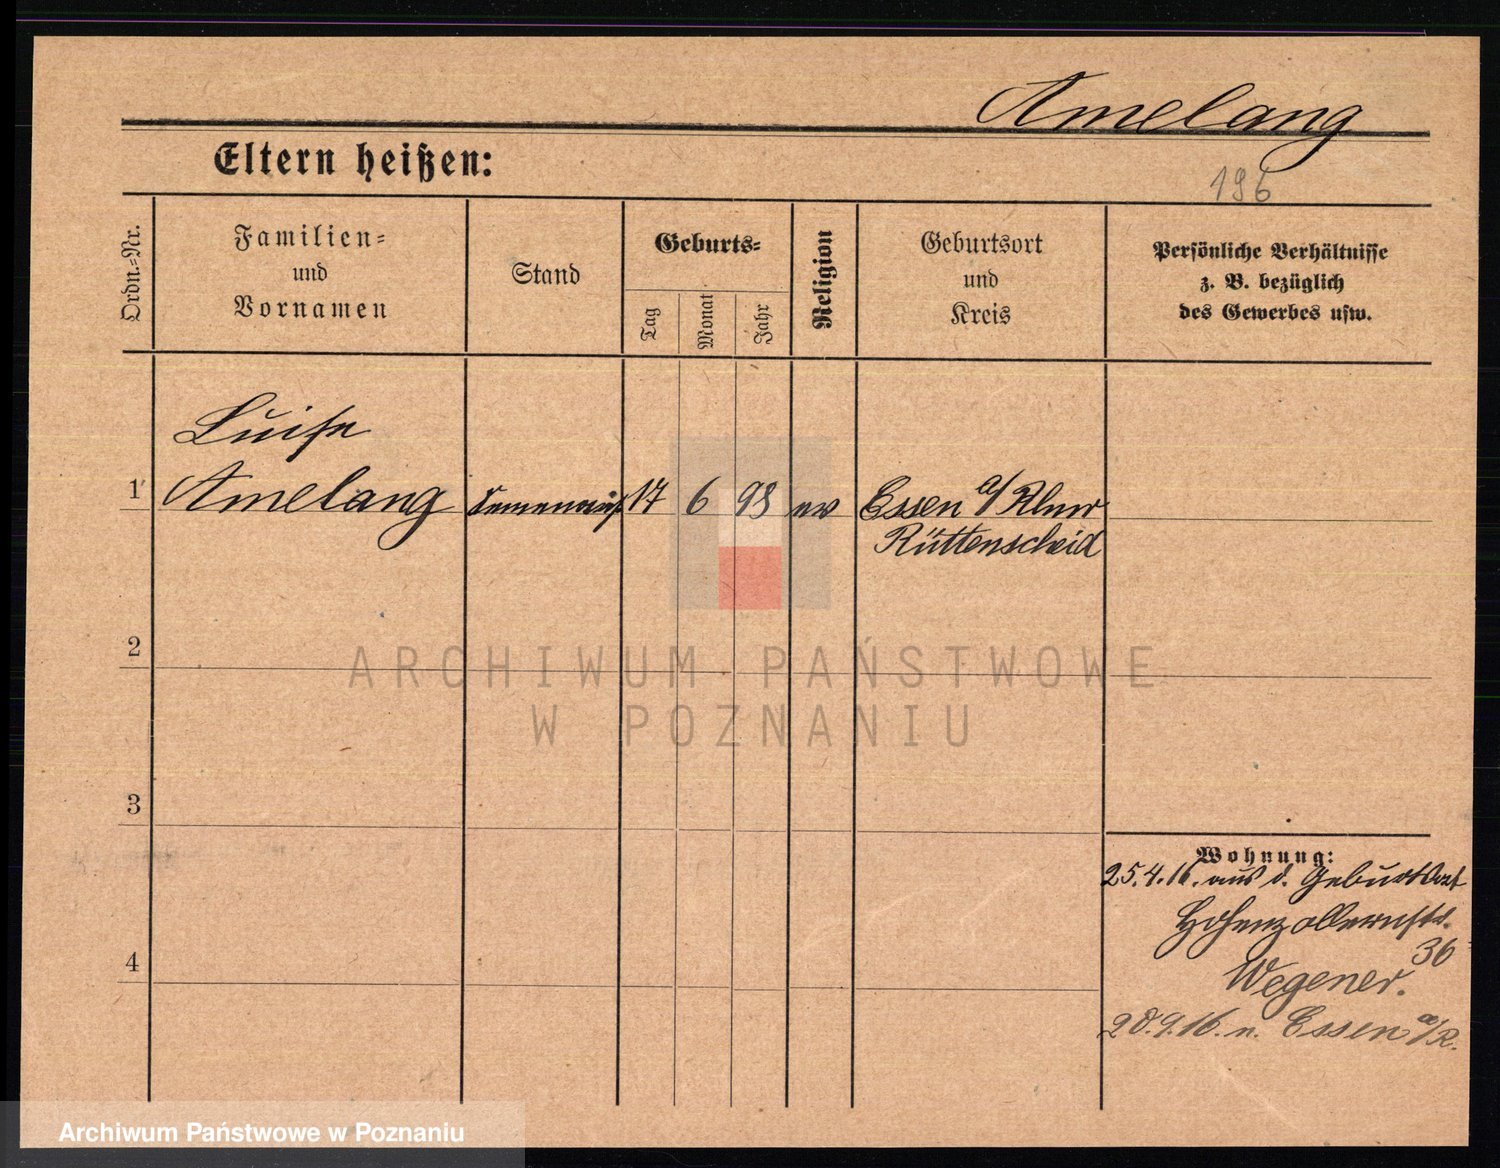 Amelang
Eltern heißen:
196
Ordn.-Nr.
Familien-
und
Vornamen
Stand
Geburts-
Tag
Monat
Jahr
Religion
Geburtsort
und
Kreis
Persönliche Verhältnisse
z. B. bezüglich
des Gewerbes usw.
Luise
1 Amelang 17 6 98 ev Essen a/Ruhr
Rüttenscheid
2
ARCHIWUM PAŃSTWOWE
W POZNANIU
3
4
Wohnung:
25.4.16. aus d. Geburtsort
Hohenzollernstr.
36
Wegener.
28.9.16. n. Essen a/R.
Archiwum Państwowe w Poznaniu